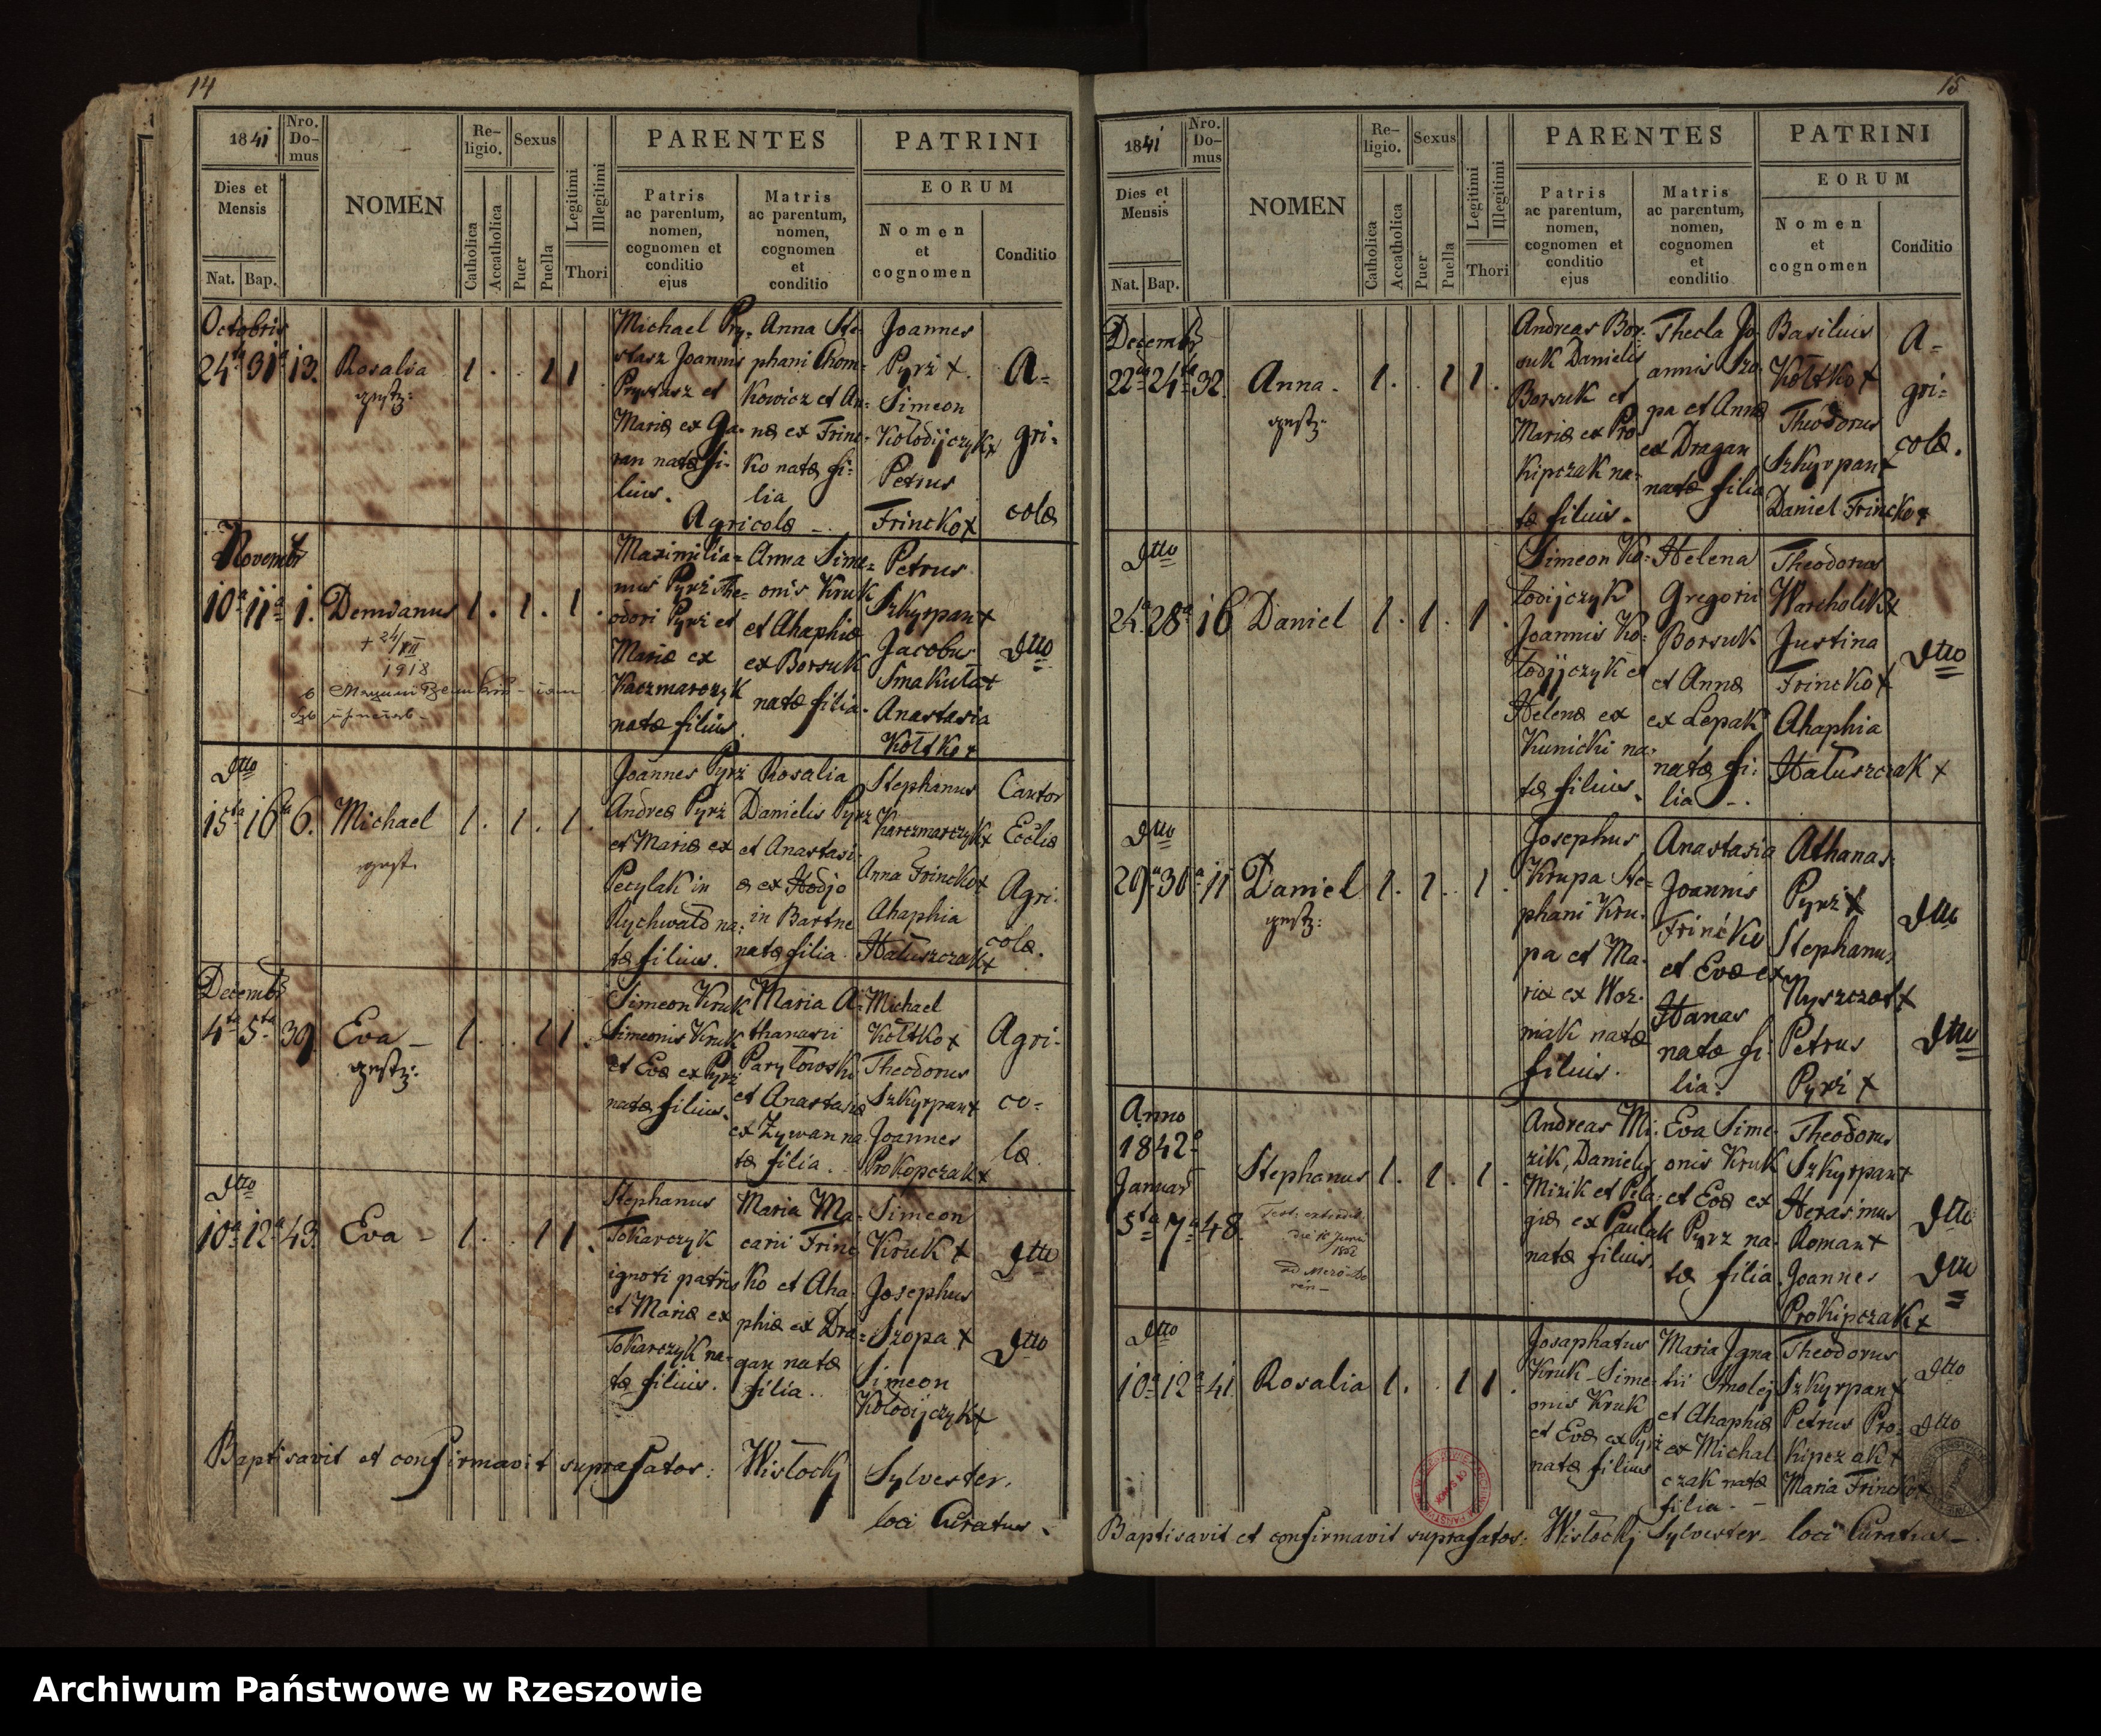 14
1841
Nro. Do- mus
Re- ligio.
Sexus
Legitimi
Illegitimi
PARENTES
PATRINI
Dies et Mensis
NOMEN
Catholica
Accatholica
Puer
Puella
Thori
Patris ac parentum, nomen, cognomen et conditio ejus
Matris ac parentum, nomen, cognomen et conditio
EORUM
Nomen et cognomen
Conditio
Nat. Bap.
Octobris
24ta 31a 13. Rosalia 1 . . 1 1 .
Michael Pry-
stasz Joannis
Prystasz et
Mariæ ex Ga-
ran natæ fi-
lius.
Anna Ste-
phani Chom-
kowicz et An-
næ ex Frinc-
ko natæ fi-
lia
Agricolæ -.
Joannes
Pyrż +.
Simeon
Kołodijczyk +
Petrus
Frincko +
A-
gri-
colæ
Novembr
10a 11a 1. Demianus 1 . 1 . 1 .
+ 24/XII
1918
Maximilia-
nus Pyrż The-
odori Pyrż et
Mariæ ex
Kaczmarczyk
natæ filius.
Anna Sime-
onis Kruk
et Ahaphiæ
ex Borsuk
natæ filia.
Petrus
Szkyrpan +
Jacobus
Smakuła +
Anastasia
Kołtko +
Dtto
Dtto
15ta 16ta 6. Michael 1 . 1 . 1 .
Joannes Pyrż
Andreæ Pyrż
et Mariæ ex
Pecylak in
Rychwałd na-
tæ filius.
Rosalia
Danielis Pyrż
et Anastasi-
æ ex Hodjo
in Bartne
natæ filia.
Stephanus
Karczmarczyk +
Anna Frincko +
Ahaphia
Hałuszczak +
Cantor
Ecclæ
Agri-
colæ.
Decembr
4ta 5ta 39 Eva - 1 . . 1 1 .
Simeon Kruk
Simeonis Kruk
et Evæ ex Pyrż
natæ filius.
Maria A-
thanasii
Paryłowski
et Anastasiæ
ex Zywan na-
tæ filia.
Michael
Kołtko +
Theodorus
Szkyrpan +
Joannes
Prokopczak +
Agri-
co-
læ
Dtto
10a 12a 43. Eva - 1 . . 1 1 .
Stephanus
Tokarczyk
ignoti patris
et Mariæ ex
Tokarczyk na-
tæ filius.
Maria Ma-
carii Frinc-
ko et Aha-
phiæ ex Dra-
gan natæ
filia.
Simeon
Kruk +
Josephus
Szopa +
Simeon
Kołodijczyk +
Dtto
Dtto
Baptisavit et confirmavit suprafatos: Wisłocky Sylvester.
loci Curatus.
15
1841
Nro. Do- mus
Re- ligio.
Sexus
Legitimi
Illegitimi
PARENTES
PATRINI
Dies et Mensis
NOMEN
Catholica
Accatholica
Puer
Puella
Thori
Patris ac parentum, nomen, cognomen et conditio ejus
Matris ac parentum, nomen, cognomen et conditio
EORUM
Nomen et cognomen
Conditio
Nat. Bap.
Decembr
22da 24ta 32. Anna - 1 . . 1 1 .
Andreas Bor-
suk Danielis
Borsuk et
Mariæ ex Pro-
kipczak na-
tæ filius.
Thecla Jo-
annis Szo-
pa et Annæ
ex Dragan
natæ filia
Basilius
Kołtko +
Theodorus
Szkyrpan +
Daniel Frincko +
A-
gri-
colæ.
Dtto
24ta 28a 16 Daniel 1 . 1 . 1 .
Simeon Ko-
łodijczyk
Joannis Ko-
łodijczyk et
Helenæ ex
Kunicki na-
tæ filius.
Helena
Gregorii
Borsuk
et Annæ
ex Lepak
natæ fi-
lia -.
Theodorus
Warcholik +
Justina
Frincko +
Ahaphia
Hałuszczak +
Dtto
Dtto
29a 30a 11 Daniel 1 . 1 . 1 .
Josephus
Krupa Ste-
phani Kru-
pa et Ma-
riæ ex Woz-
niak natæ
filius.
Anastasia
Joannis
Frincko
et Evæ ex
Hanas
natæ fi-
lia.
Athanas.
Pyrż +
Stephanus
Nyszczot +
Petrus
Pyrż +
Dtto
Dtto
Anno
1842o
Januar
5ta 7a 48. Stephanus 1 . 1 . 1 .
Andreas Mi-
zik, Danielis
Mizik et Pela-
giæ ex Paulak
natæ filius.
Eva Sime-
onis Kruk
et Evæ ex
Pyrż na-
tæ filia.
Theodorus
Szkyrpan +
Herasimus
Roman +
Joannes
Prokipczak +
Dtto
Dtto
Dtto
10a 12a 41. Rosalia 1 . . 1 1 .
Josaphatus
Kruk - Sime-
onis Kruk
et Evæ ex Pyrż
natæ filius
Maria Igna-
tii Smolej
et Ahaphiæ
ex Michal-
czak natæ
filia. -
Theodorus
Szkyrpan +
Petrus Pro-
kipczak +
Maria Frincko +
Dtto
Dtto
Baptisavit et confirmavit suprafatos: Wisłocky Sylvester - loci Curatus -.
Archiwum Państwowe w Rzeszowie